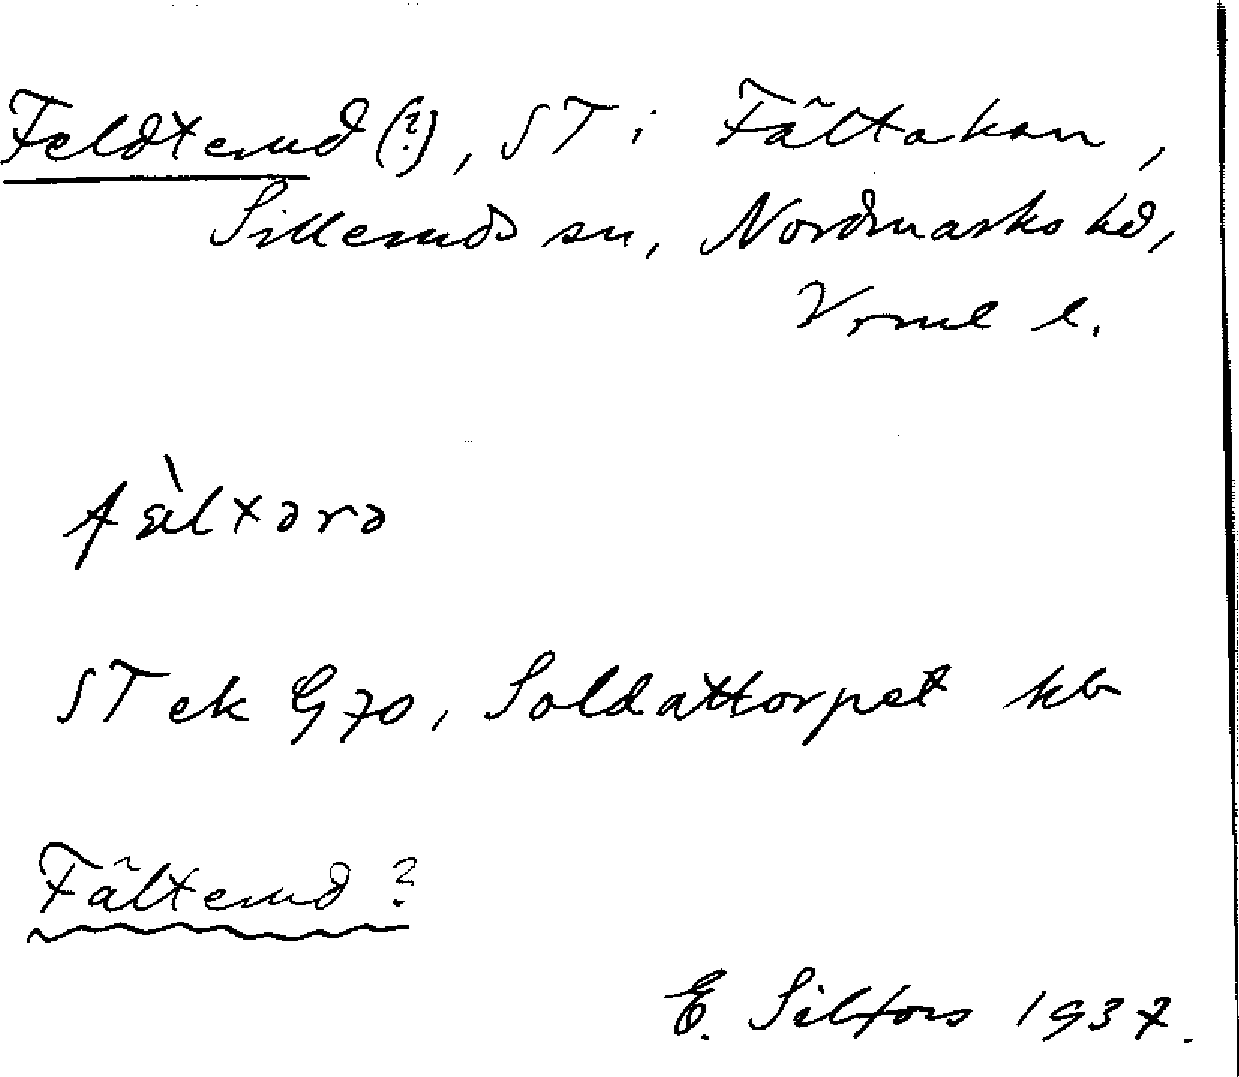 Feldterud (?), ST i Fältakan,
Silleruds sn, Nordmarks hd,
Vrml l.
fæ̀ltərə
ST ek G 70, Soldattorpet kb
Fälterud ?
E. Silfors 1937.